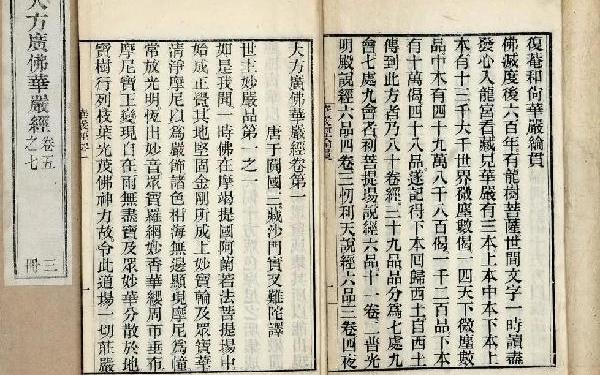 復菴和尚華嚴綸貫
佛滅度後六百年有龍樹菩薩世間文字一時讀盡
發心入龍宮看藏見華嚴有三本上本中本下本上
本有十三千大千世界微塵數偈一四天下微塵數
品中本有四十九萬八千八百偈一千二百品下本
有十萬偈四十八品遂記得下本回歸西土自西土
傳到此方者乃八十卷經三十九品品分爲七處九
會七處九會者初菩提場說經六品十一卷二普光
明殿說經六品四卷三忉利天說經六品三卷四夜
大方廣佛華嚴經卷第一
唐于闐國三藏沙門實叉難陀譯
世主妙嚴品第一之一
如是我聞一時佛在摩竭提國阿蘭若法菩提場中
始成正覺其地堅固金剛所成上妙寶輪及眾寶華
清淨摩尼以爲嚴飾諸色相海無邊顯現摩尼爲幢
常放光明恆出妙音眾寶羅網妙香華纓周帀垂布
摩尼寶王變現自在雨無盡寶及眾妙華分散於地
寶樹行列枝葉光茂佛神力故令此道場一切莊嚴
大方廣佛華嚴經
卷五之七
三冊